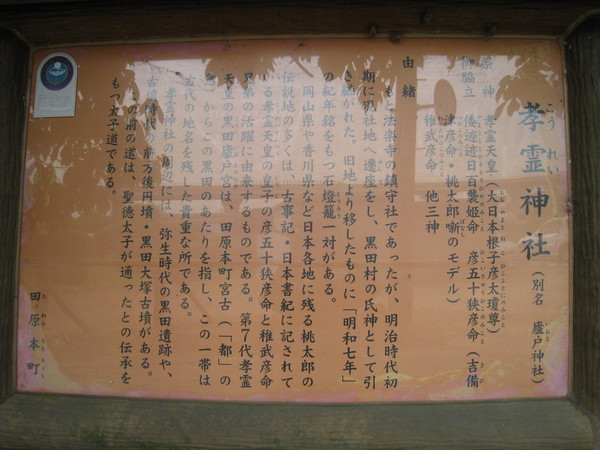 孝霊神社（別名 廬戸神社）
祭神 孝霊天皇（大日本根子彦太瓊尊）
御脇立 倭迹迹日百襲姫命 彦五十狭彦命（吉備
津彦命・桃太郎噺のモデル）
稚武彦命 他三神
由緒
もと法楽寺の鎮守社であったが、明治時代初
期に現社地へ遷座をし、黒田村の氏神として引
き継がれた。旧地より移したものに「明和七年」
の紀年銘をもつ石燈籠一対がある。
岡山県や香川県など日本各地に残る桃太郎の
伝説地の多くは、古事記・日本書紀に記されて
いる孝霊天皇の皇子の彦五十狭彦命と稚武彦命
兄弟の活躍に由来するものである。第7代孝霊
天皇の黒田廬戸宮は、田原本町宮古（「都」の
意）からこの黒田のあたりを指し、この一帯は
古代の地名を残した貴重な所である。
孝霊神社の周辺には、弥生時代の黒田遺跡や、
古墳時代の前方後円墳・黒田大塚古墳がある。
この前の道は、聖徳太子が通ったとの伝承を
もつ太子道である。
田原本町